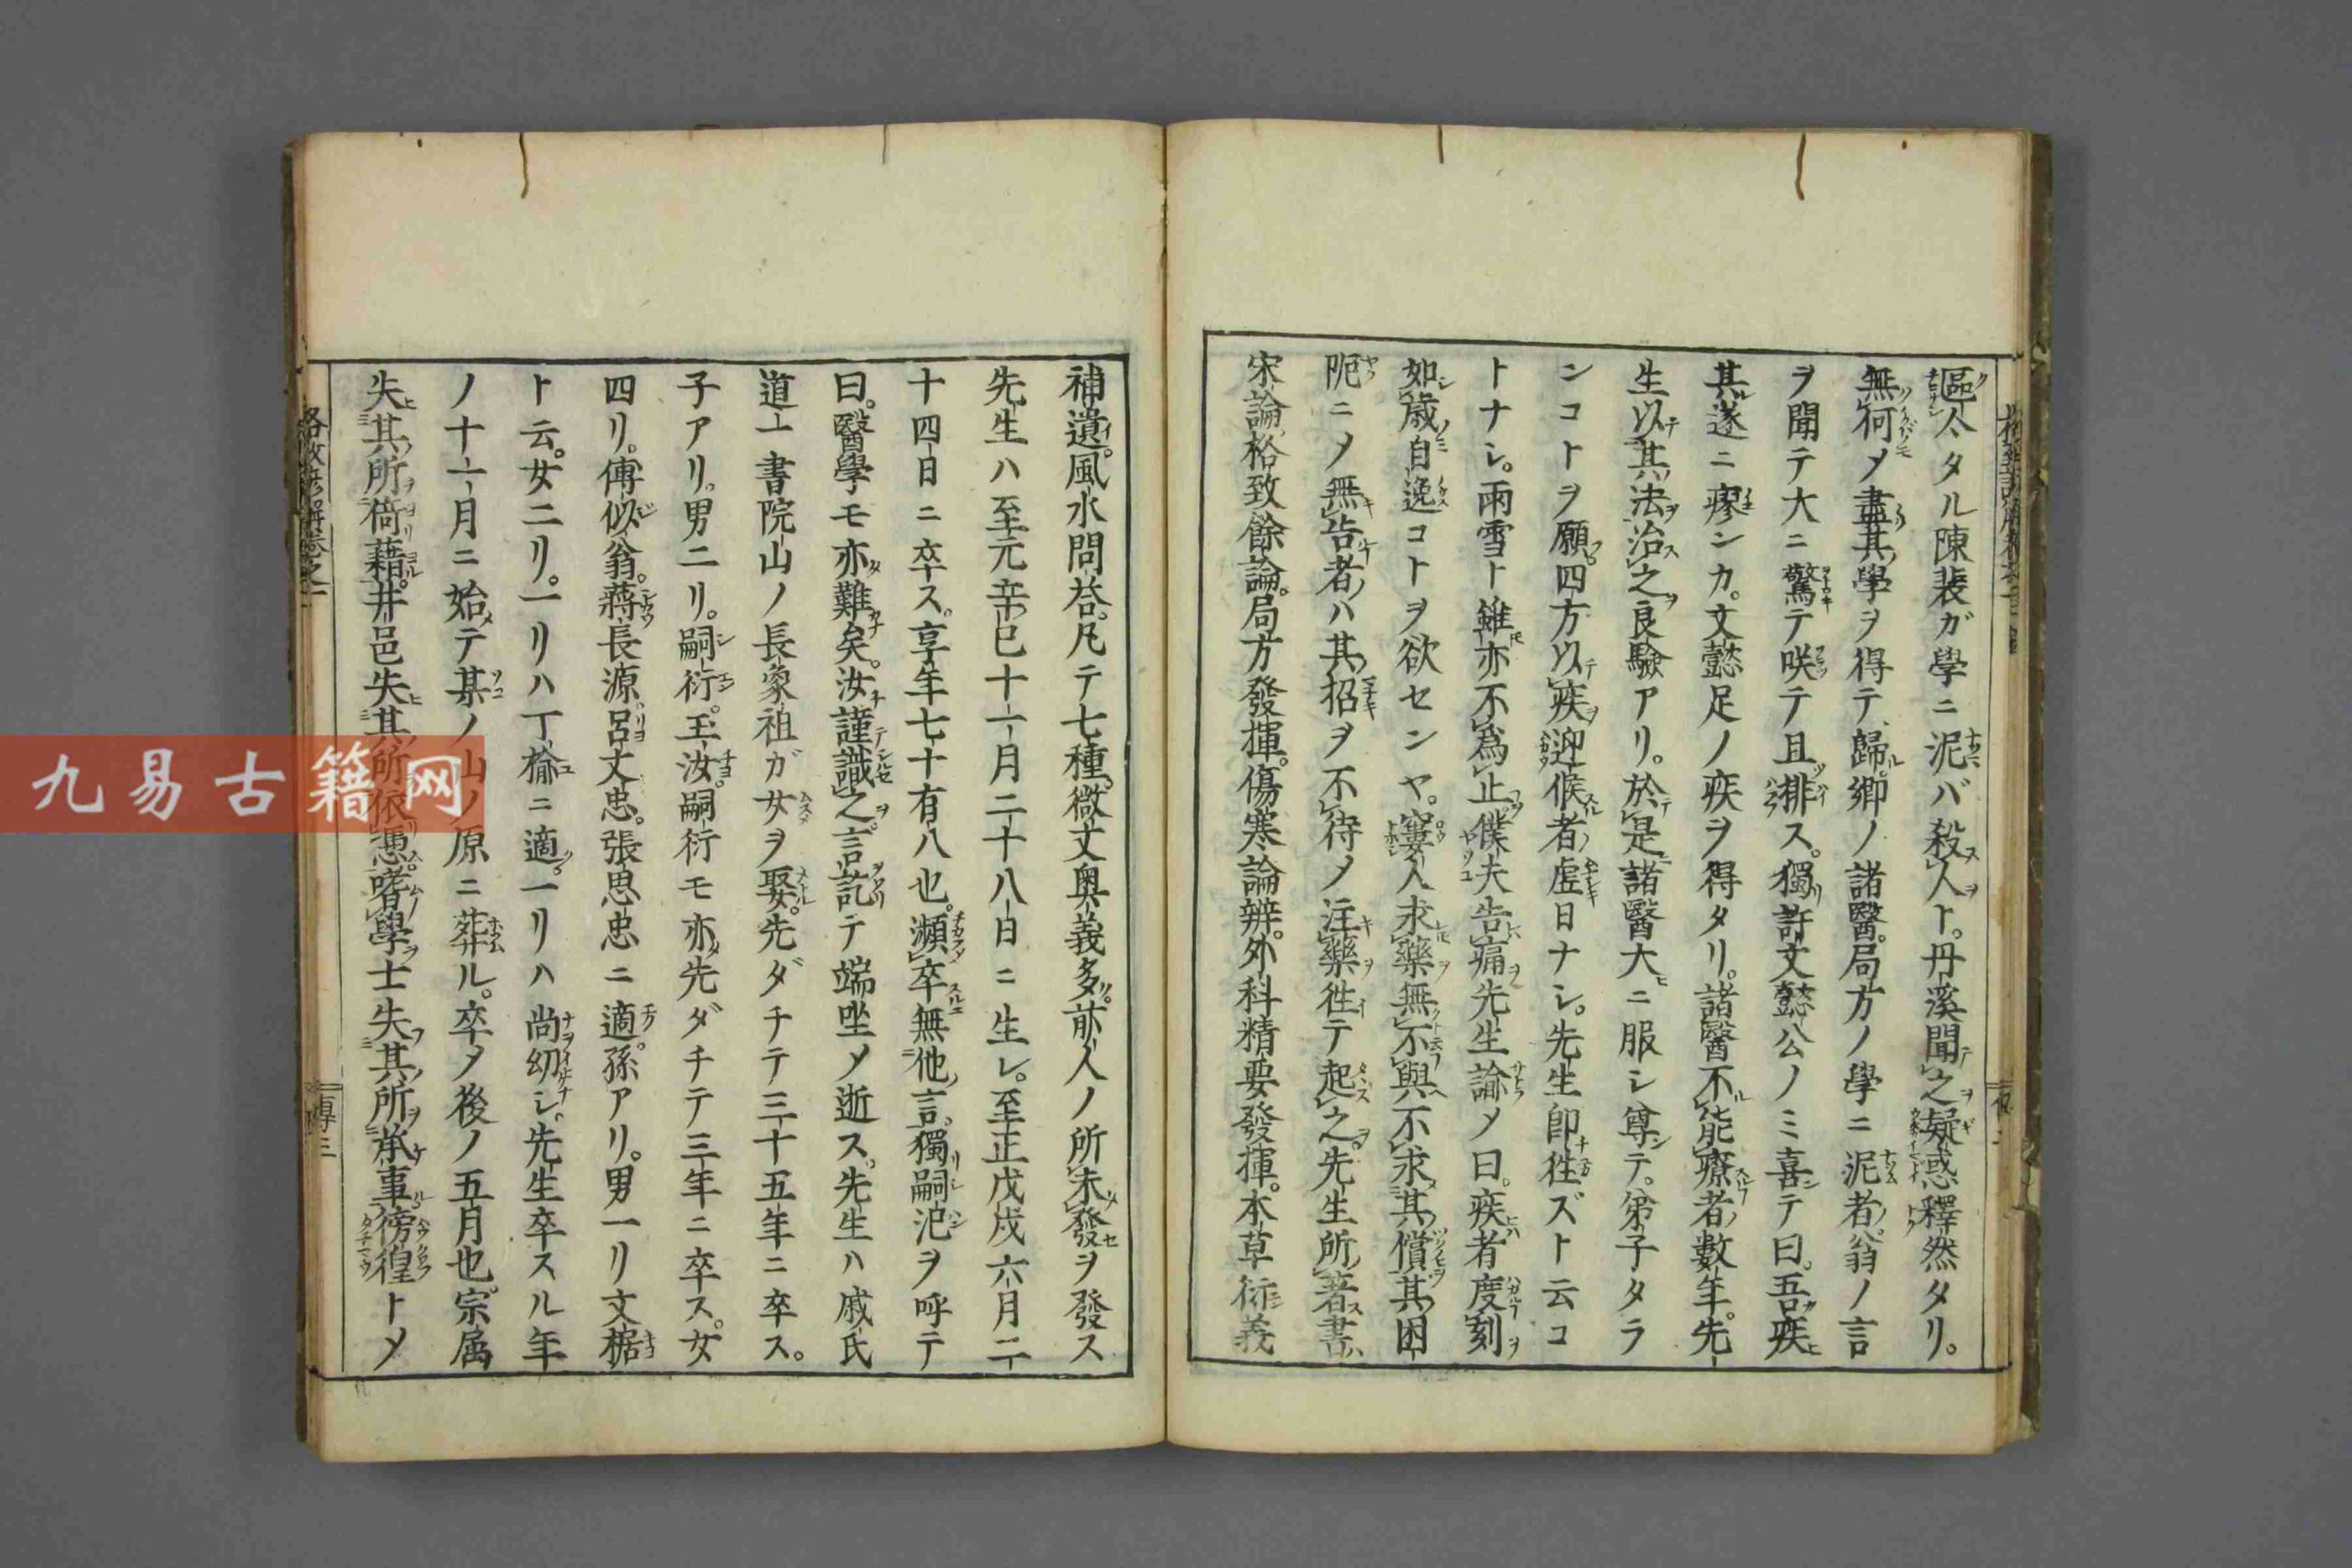 區々タル陳裴ガ學ニ泥バ殺人ト。丹溪聞之疑惑釋然タリ。
無何メ盡其學ヲ得テ歸鄉ノ諸醫。局方ノ學ニ泥者。翁ノ言
ヲ聞テ大ニ驚テ咲テ且排ス。獨許文懿公ノミ喜テ曰。吾疾
其遂ニ瘳ンカ。文懿足ノ疾ヲ得タリ。諸醫不能療者數年。先
生以其法治之良驗アリ。於是諸醫大ニ服シ尊テ。弟子タラ
ンコトヲ願。四方以疾迎候者虛日ナシ。先生卽徃ズト云コ
トナシ。雨雪ト雖亦不爲止。僕夫告痛先生諭メ曰。疾者度刻
如歲自逸コトヲ欲センヤ。窶人求藥無不與不求其償其困
阨ニメ無告者ハ其招ヲ不待メ注藥徃テ起之。先生所著書
宋論。格致餘論。局方發揮。傷寒論辨。外科精要發揮。本草衍義
補遺。風水問荅。凡テ七種。微文奧義多。前人ノ所未發ヲ發ス
先生ハ至元辛巳十一月二十八日ニ生レ。至正戊戌六月二
十四日ニ卒ス。享年七十有八也。瀕卒無他言。獨嗣汜ヲ呼テ
曰。醫學モ亦難矣。汝謹識之。言訖テ端坐メ逝ス。先生ハ戚氏
道一書院山ノ長象祖ガ女ヲ娶。先ダチテ三十五年ニ卒ス。
子アリ。男二リ。嗣衍。玉汝。嗣衍モ亦先ダチテ三年ニ卒ス。女
四リ。傅似翁。蔣長源。呂文忠。張思忠ニ適。孫アリ。男一リ文椐
ト云。女二リ。一リハ丁楡ニ適。一リハ尚幼シ。先生卒スル年
ノ十一月ニ始テ某ノ山ノ原ニ葬ル。卒メ後ノ五月也。宗属
失其所倚藉。井邑失其所依憑。嗜學士失其所承事。傍徨トメ
傳三
九易古籍网